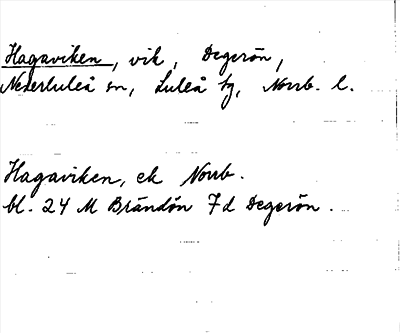 Hagaviken, vik, Degerön,
Nederluleå sn, Luleå tg, Norrb. l.
Hagaviken, ek Norrb.
bl. 24 M Brändön 7d Degerön.